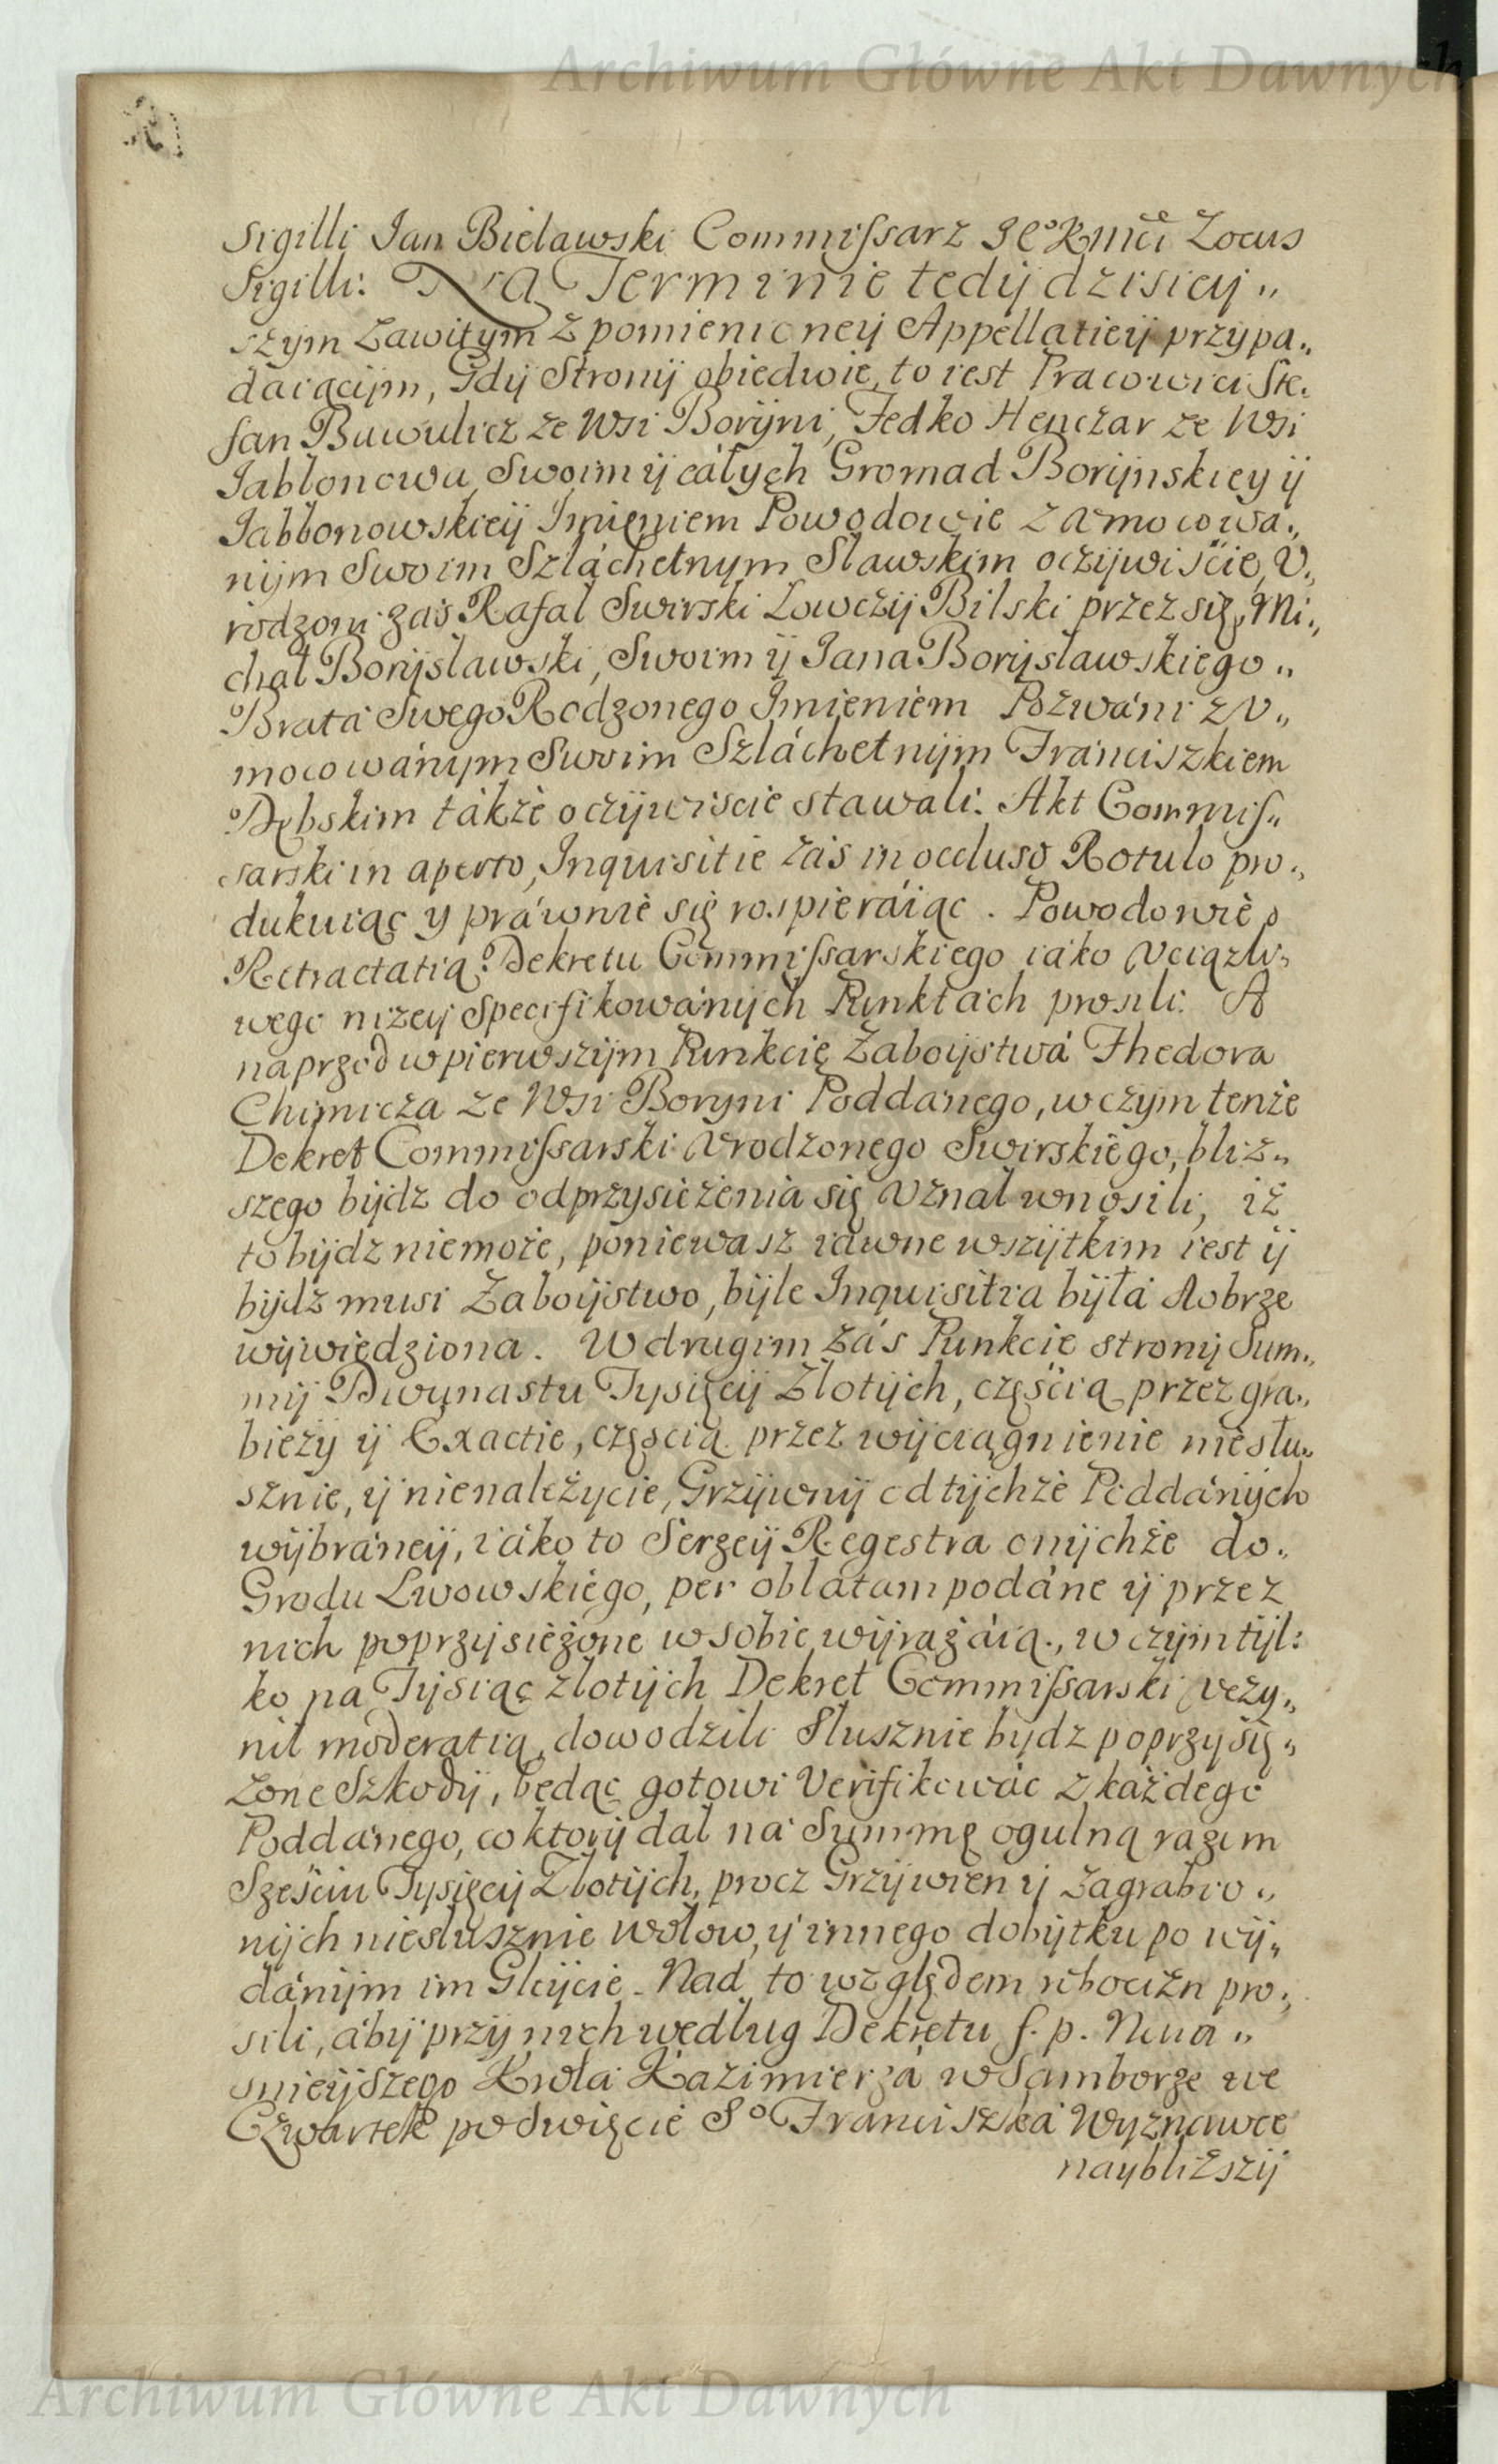 Archiwum Główne Akt Dawnych
Sigilli Jan Bielawski Commissarz JeoKmći Locus
Sigilli: Na Terminie tedÿ dzisiey„
szym Zawitym z pomienioneÿ Appellatieÿ przypa„
daiącÿm, Gdÿ Stronÿ obiedwie, to iest Pracowici Ste„
fan Buwulicz ze Wsi Borÿni, Fedko Henczar ze Wsi
Jablonowa, Swoim ÿ cáłych Gromad Borÿnskiey ÿ
Jabłonowskieÿ Imieniem Powodowie z Vmocowa„
nÿm Swoim Szláchetnym Sławskim oczÿwiście, V„
rodzoni záś Rafał Swirski Łowczÿ Bilski przez się, Mi„
chał Borÿsławski, Swoim ÿ Jana Borÿsławskiego„
Bratá Swego Rodzonego Imieniem Pozwáni z V„
mocowánym Swoim Szláchetnÿm Fránciszkiem
Dębskim tákże oczÿwiscie stawali. Akt Commis„
sarski in aperto, Inquisitie záś in occluso Rotulo pro„
dukuiąc y práwnie się rospieráiąc. Powodowie o
Retractatią Dekretu Commissarskiego iáko Vciązli„
wego nizeÿ Specifikowánÿch Punktách prosili. A
naprzod w pierwszÿm Punkcię Zaboÿstwá Fhedora
Chimicza ze Wsi Boryni Poddánego, w czym tenże
Dekret Commissarski Vrodzonego Swirskiego, bliz„
szego bÿdz do odprzysieżenia się Vznał wnosili, iż
to bÿdz niemoże, poniewasz iáwne wszÿtkim iest ÿ
bÿdź musi Zaboÿstwo, bÿle Inquisitia bÿłá dobrze
wÿwiedziona. W drugim záś Punkcie stronÿ Sum„
mÿ Dwunastu Tysięcÿ Złotÿch, częścią przez gra„
bieżÿ ÿ Exactie, częścią przez wÿciągnienie niesłu„
sznie, ÿ nienależycie, Grzÿwnÿ od tÿchże Poddánÿch
wÿbráneÿ, iáko to Serzeÿ Regestra onÿchże do„
Grodu Lwowskiego, per oblatam podáne ÿ przez
nich poprzÿsieżone w sobie wÿrażáią, w czÿm tÿl:
ko na Tÿsiąc złotÿch Dekret Commissarski Vczy„
nił moderatią, dowodzili Słusznie bydz poprzysię„
zone Szkodÿ, będąc gotowi Verifikowác z każdego
Poddánego, co ktorÿ dał ná Summę ogulną razem
Sześciu Tysięcÿ Złotÿch, procz Grzÿwien ÿ zagrabio„
nÿch niesłusznie wołow, ÿ innego dobÿtku po wÿ„
dánÿm im Gleÿcie. Nad to względem robocizn pro„
sili, ábÿ przÿ nich według Dekretu ś. p. Naia„
snieÿszego Krolá Kázimierzá w Samborze we
Czwartek po Swięcie So Franciszká Wyznawce
naybliższÿ
Archiwum Główne Akt Dawnych